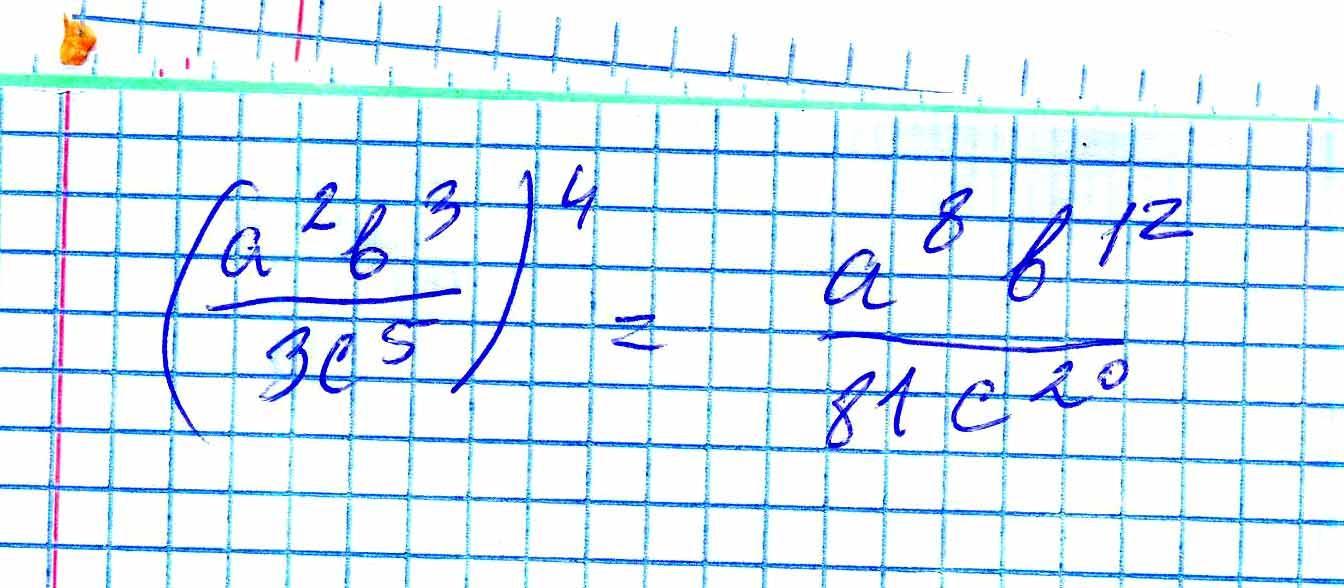 (a²b³/3c⁵)⁴ = a⁸b¹²/81c²⁰